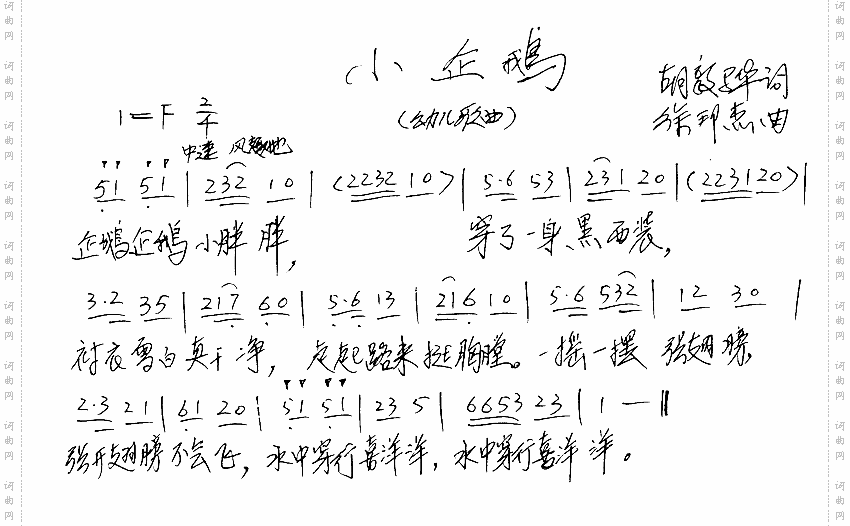 小企鹅
(幼儿歌曲)
胡敦华词
徐邦杰曲
1=F 2/4
中速 风趣地
51 51 | 232 10 | (2232 10) | 5·6 53 | 231 20 | (2231 20) |
企鹅企鹅小胖胖, 穿了一身黑西装,
3·2 35 | 217 60 | 5·6 13 | 216 10 | 5·6 532 | 12 30 |
衬衣雪白真干净, 走起路来挺胸膛。一摇一摆 张翅膀,
2·3 21 | 61 20 | 51 51 | 23 5 | 6653 23 | 1 — ‖
张开翅膀不会飞, 水中穿行喜洋洋, 水中穿行喜洋洋。
词曲网